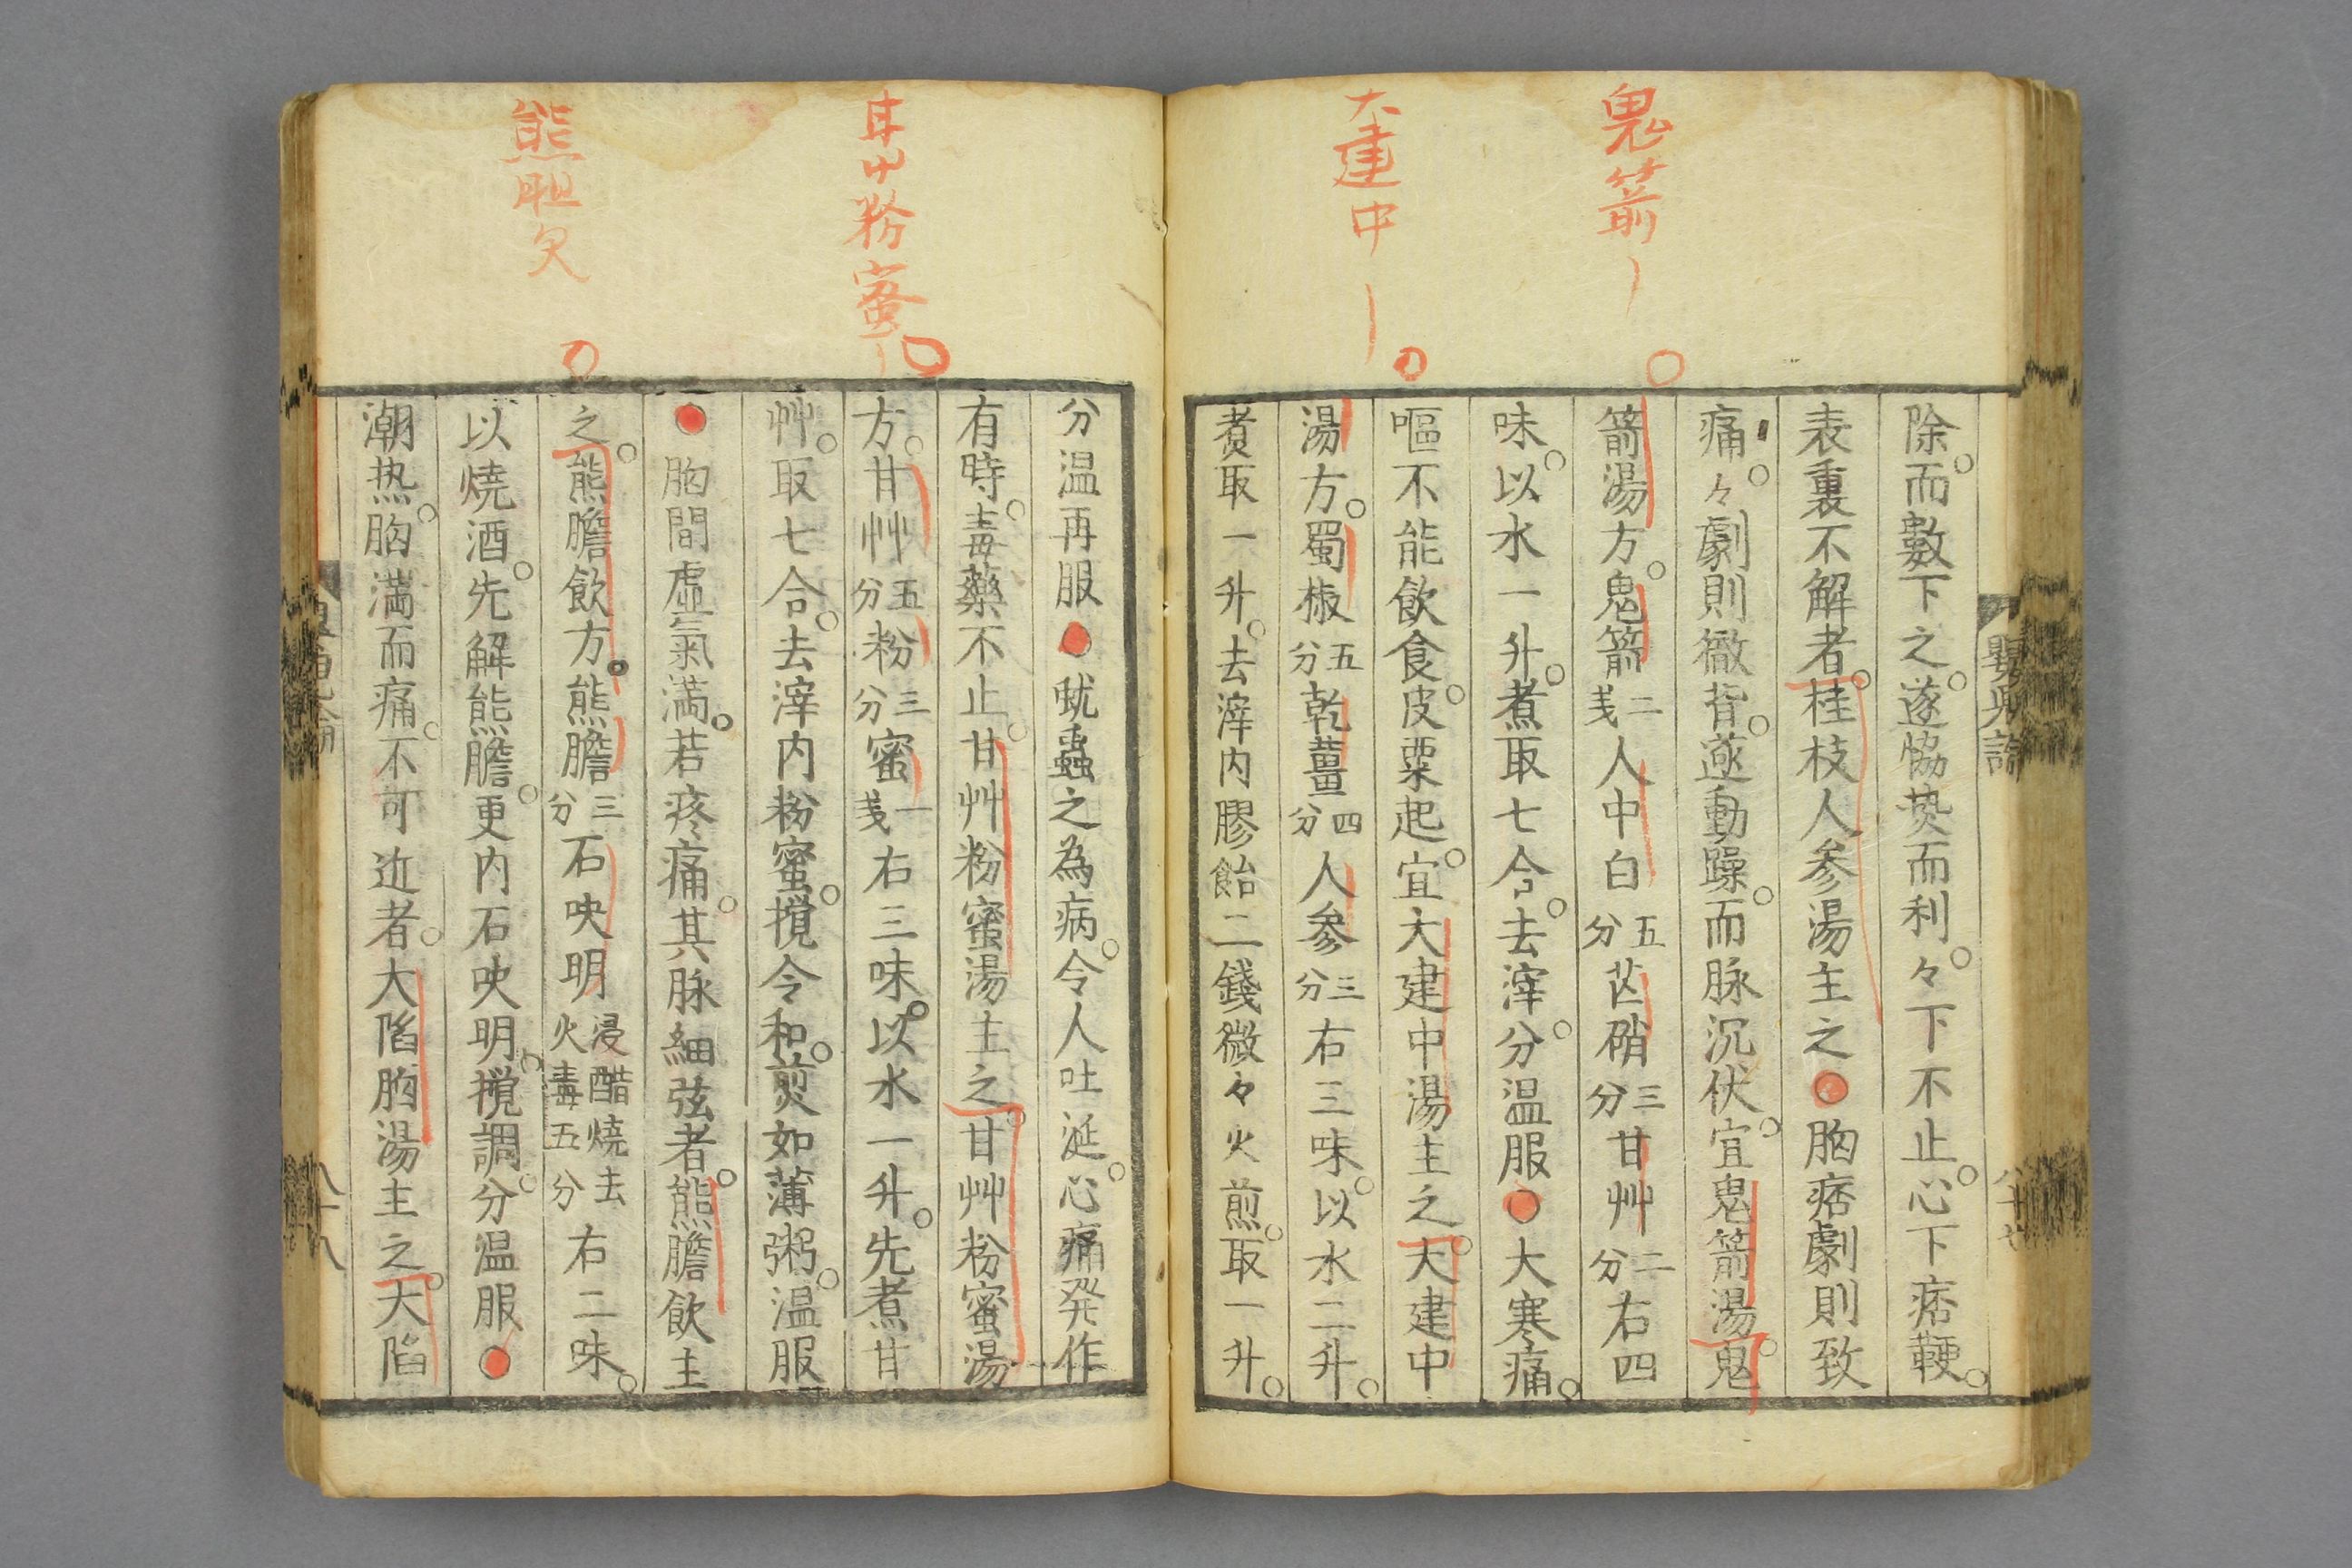 鬼箭
大建中
除。而數下之。遂恊热而利。々下不止。心下痞鞕。
表裏不解者。桂枝人参湯主之●胸痞劇則致
痛。々劇則徹背。逆動躁。而脉沉伏。宜鬼箭湯。鬼
箭湯方。鬼箭二戔人中白五分芒硝三分甘艸二分右四
味。以水一升。煮取七合。去滓。分温服●大寒痛。
嘔不能飲食。皮粟起。宜大建中湯主之。大建中
湯方。蜀椒五分乾薑四分人参三分右三味。以水二升。
煮取一升。去滓内膠飴二錢微々火煎。取一升。
嬰児論
八十七
甘艸粉蜜
熊胆
分温再服●蚘蟲之為病。令人吐涎。心痛発作
有時。毒藥不止。甘艸粉蜜湯主之。甘艸粉蜜湯
方。甘艸五分粉三分蜜一戔右三味。以水一升。先煮甘
艸。取七合。去滓内粉蜜。攪令和。煎如薄粥。温服
●胸間虛氣満。若疼痛。其脉細弦者。熊膽飲主
之。熊膽飲方。熊膽三分石决明浸醋燒去火毒五分右二味。
以焼酒。先解熊膽。更内石决明。攪調。分温服●
潮热。胸満而痛。不可近者。大陷胸湯主之。大陷
八十八